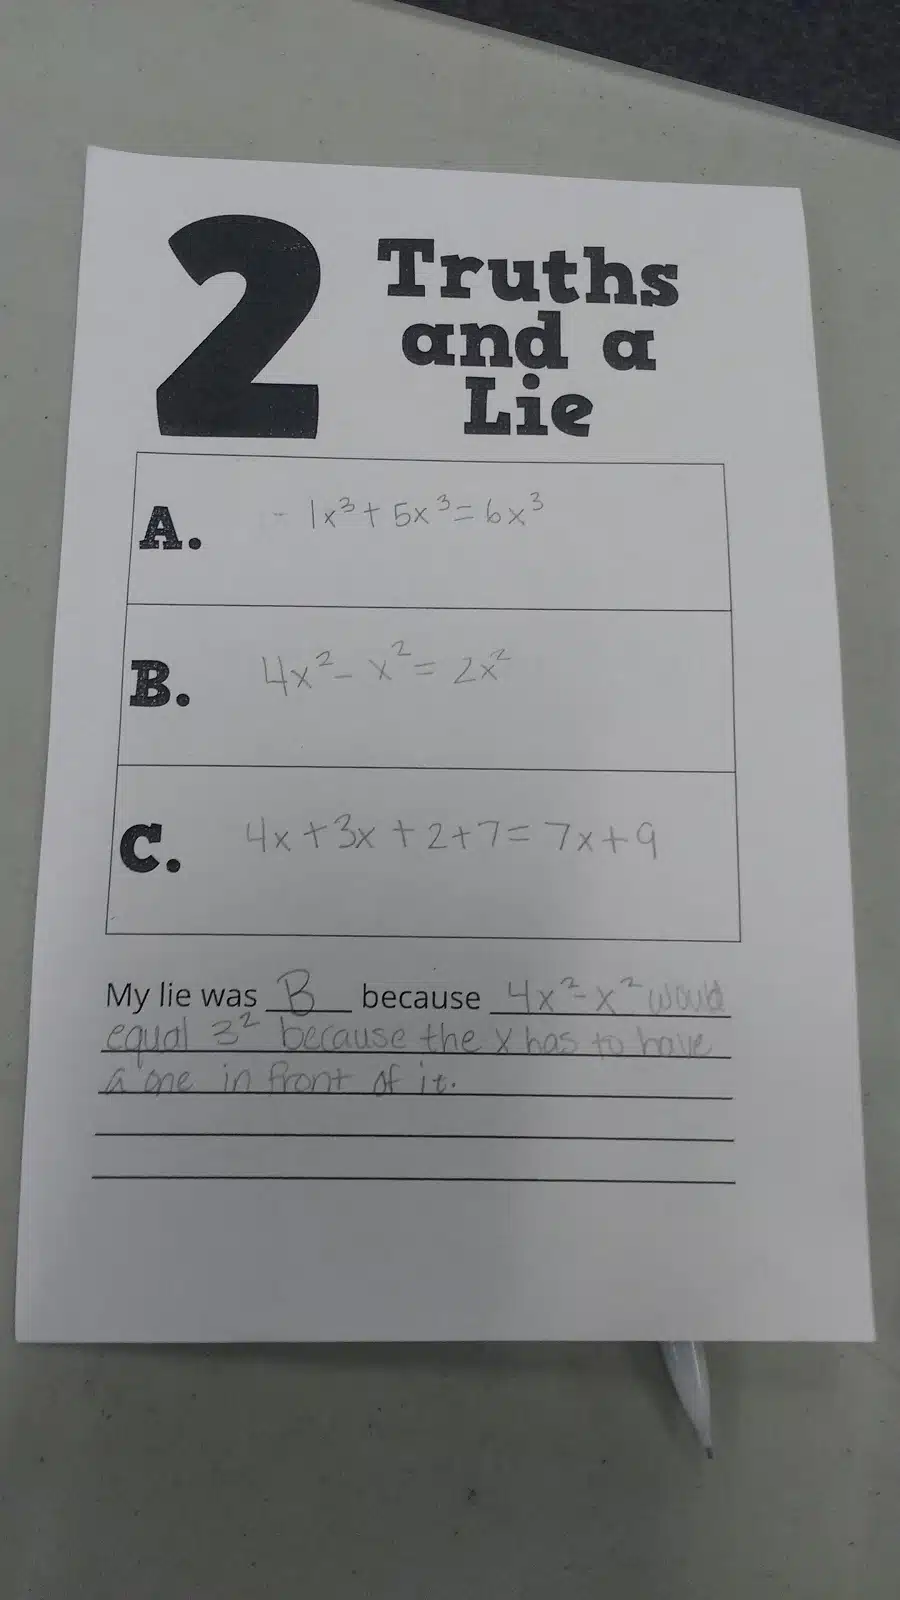 2
Truths
and a
Lie
A. - 1x³ + 5x³ = 6x³
B. 4x² - x² = 2x²
C. 4x + 3x + 2 + 7 = 7x + 9
My lie was B because 4x² - x² would
equal 3² because the x has to have
a one in front of it.